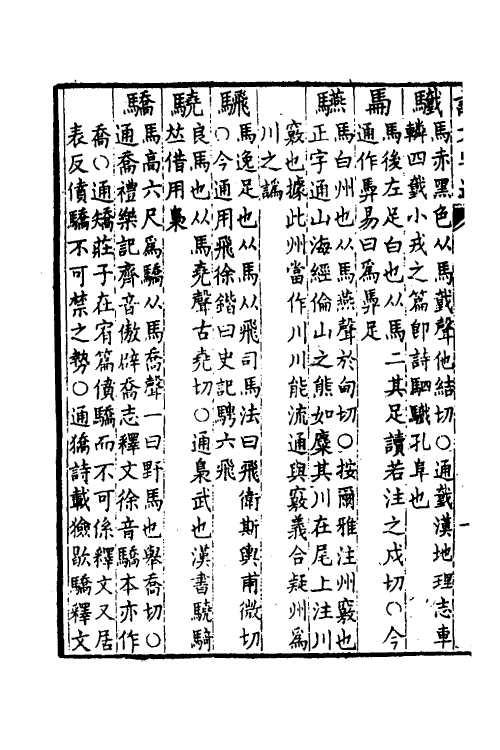 驖馬赤黑色从馬戴聲他結切○通戴漢地理志車
轔四戴小戎之篇卽詩駟驖孔阜也
馵馬後左足白也从馬二其足讀若注之戍切○今
通作馵易曰爲馵足
驠馬白州也从馬燕聲於甸切○按爾雅注州竅也
正字通山海經倫山之熊如麋其川在尾上注川
竅也據此州當作川川能流通與竅義合疑州爲
川之譌
馬逸足也从馬从飛司馬法曰飛衛斯輿甫微切
○今通用飛徐鍇曰史記騁六飛
驍良馬也从馬堯聲古堯切○通梟武也漢書驍騎
𠀤借用梟
驕馬高六尺爲驕从馬喬聲一曰野馬也舉喬切○
通喬禮樂記齊音傲辟喬志釋文徐音驕本亦作
喬○通矯莊子在宥篇僨驕而不可係釋文又居
表反僨驕不可禁之勢○通獢詩載獫歇驕釋文